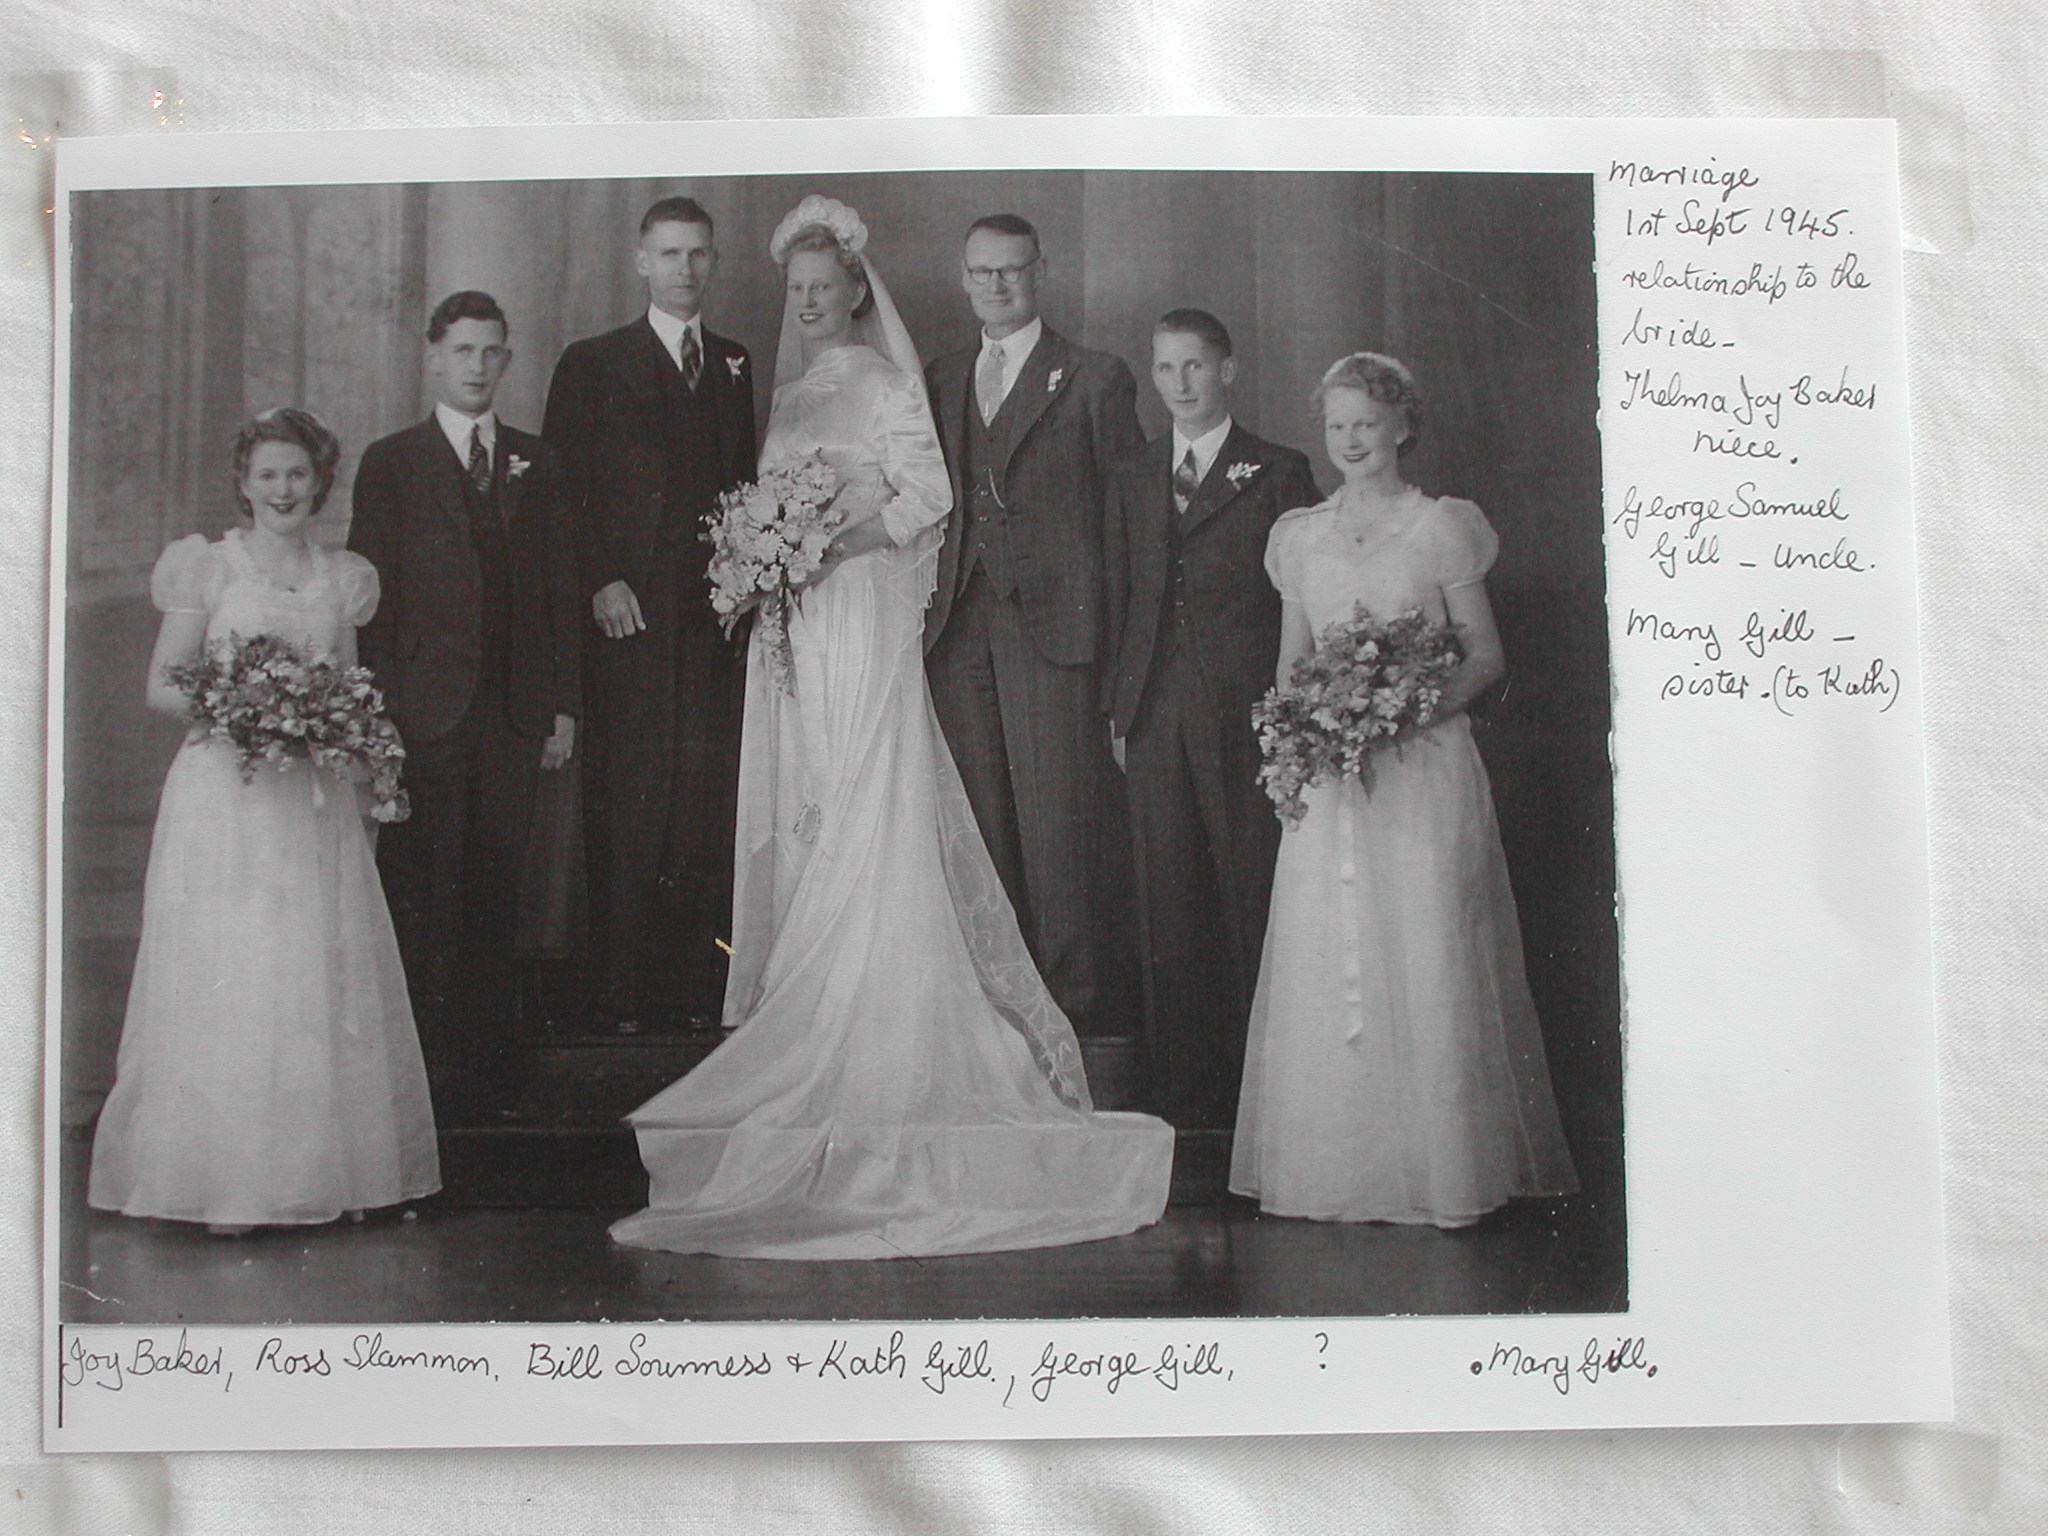 Marriage
1st Sept 1945.
relationship to the
bride -
Thelma Joy Baker
niece.
George Samuel
Gill - Uncle.
Mary Gill -
sister. (to Kath)
Joy Baker, Ross Slammon, Bill Sounness + Kath Gill., George Gill, ? . Mary Gill.